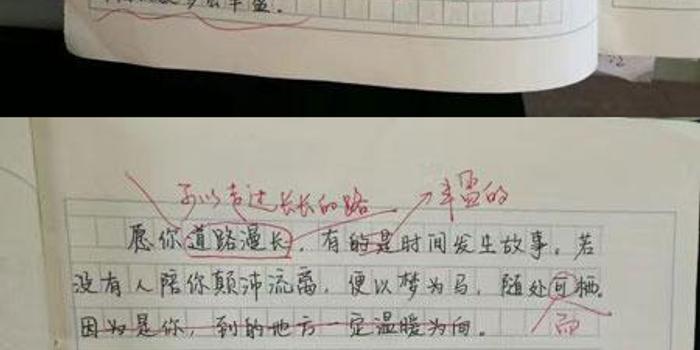 可以走过长长的路
丰盈的
愿你道路漫长，有的是时间发生故事。若
没有人陪你颠沛流离，便以梦为马，随处可栖。
因为是你，到的地方一定温暖为向。
而